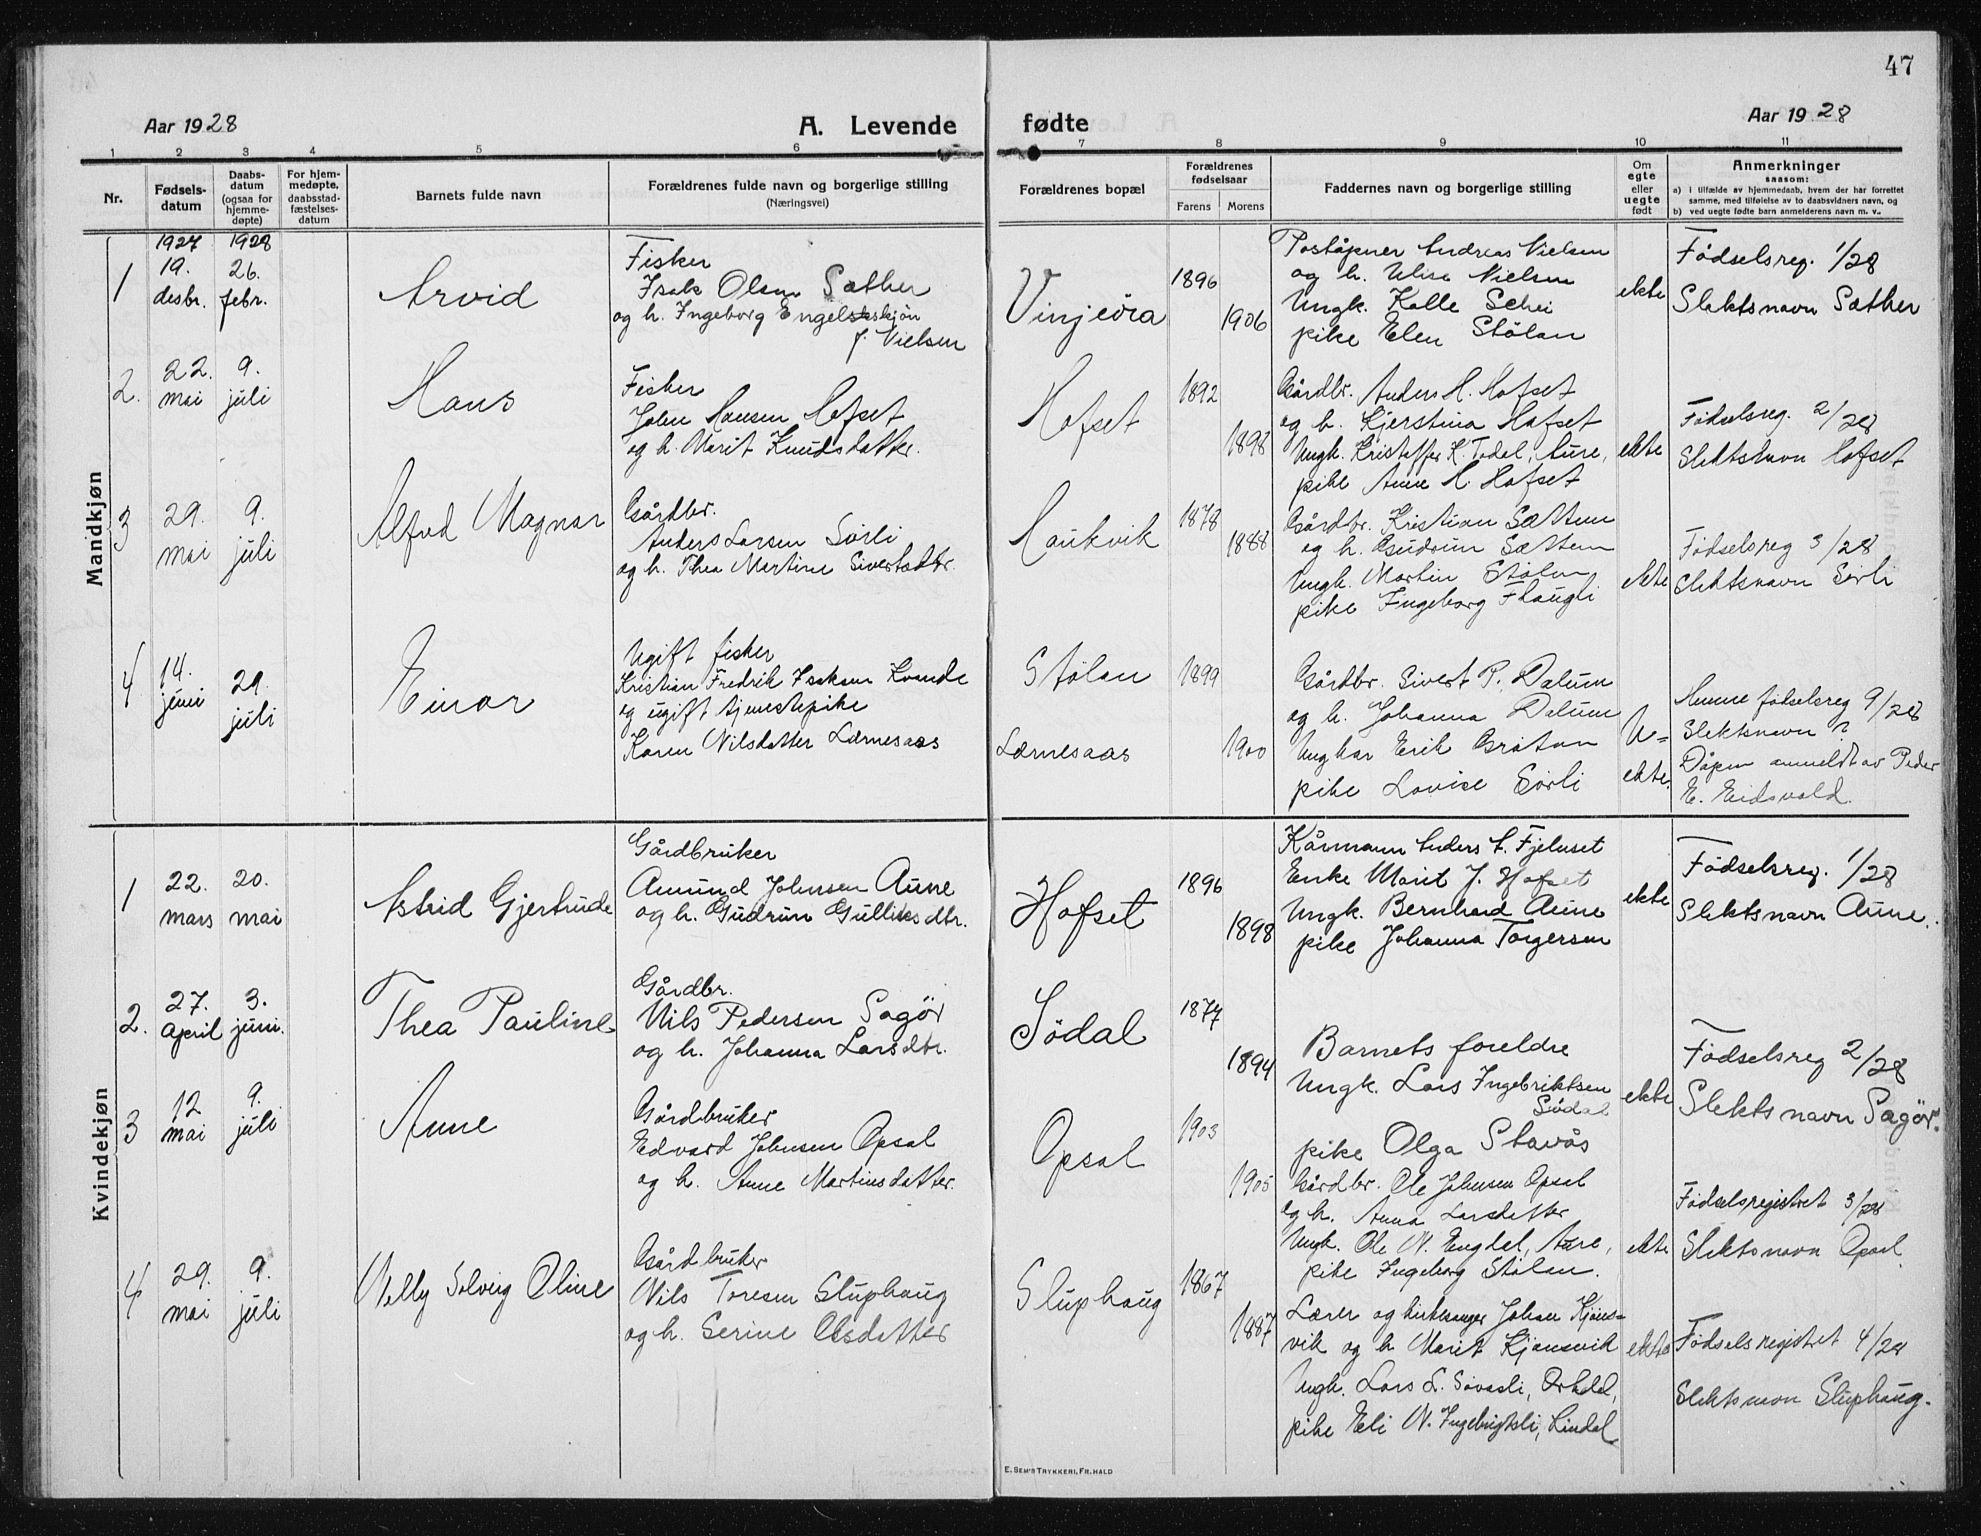 47
Aar 1928
A. Levende fødte
Aar 1928
1 2 3 4 5 6 7 8 9 10 11
Nr.
Fødsels-
datum
Daabs-
datum
(ogsaa for
hjemme-
døpte)
For hjem-
medøpte,
daabsstad-
fæstelses-
datum
Barnets fulde navn
Forældrenes fulde navn og borgerlige stilling
(Næringsvei)
Forældrenes bopæl
Forældrenes
fødselsaar
Farens Morens
Faddernes navn og borgerlige stilling
Om
egte
eller
uegte
født
Anmerkninger
saasom:
a) i tilfælde av hjemmedaab, hvem der har forrettet
samme, med tilføielse av to daabsvidners navn, og
b) ved uegte fødte barn anmelderens navn m. v..
Mandkjøn
1
1927
19.
desbr.
1928
26.
febr.
Arvid
Fisker
Isak Olsen Sæther
og h. Ingeborg Engelskjøn
f. Nielsen
Vinjeöra
1896
1906
Poståpner Andreas Nielsen
og h. Elise Nielsen
Ungk. Kalle Schei
pike Elen Stölan
ekte
Fødselsreg. 1/28
Slektsnavn Sæther
2.
22.
mai
9.
juli
Hans
Fisker
John Hansen Hofset
og h. Marit Knudsdatter.
Hofset
1892
1898
Gårdbr. Anders H. Hofset
og h. Kjerstina Hofset
Ungk. Kristoffer K. Todal, Aure,
pike Anne H. Hofset
ekte
Fødselsreg. 2/28
Slektsnavn Hofset
3
29.
mai
9.
juli
Alfred Magnar
Gårdbr.
Anders Larsen Sörli
og h. Thea Martine Sivertsdtr.
Haukvik
1878
1888
Gårdbr. Kristian Sættem
og h. Gudrun Sættem
Ungk. Martin Stölan
pike Ingeborg Flaugli
ekte
Fødselsreg 3/28
Slektsnavn Sörli
4
14.
juni
29.
juli
Einar
Ugift fisker
Kristian Fredrik Isaksen Kvande
og ugift tjenestepike
Karen Nilsdatter Lærnesaas
Stölan
Lærnesaas
1899
1900
Gårdbr. Sivert P. Dalum
og h. Johanna Dalum
Ungkar Erik Gråtun
pike Lovise Sörli
U=
ekte.
Hemne fødselsreg 9/28
Slektsnavn ?
Dåpen anmeldt av Peder
E. Eidsvold.
Kvindekjøn
1
22.
mars
20.
mai
Astrid Gjertrude
Gårdbruker
Amund Johnsen Aune
og h. Gudrun Gulliksdtr.
Hofset
1896
1898
Kårmann Anders A. Fjelnset
Enke Marit J. Hofset
Ungk. Bernhard Aune
pike Johanna Torgersen
ekte
Fødselsreg. 1/28
Slektsnavn Aune.
2.
27.
april
3.
juni.
Thea Pauline
Gårdbr.
Nils Pedersen Sagör
og h. Johanna Larsdtr.
Södal
1874
1894
Barnets foreldre
Ungk. Lars Ingebriktsen
Södal
pike Olga Stavås
ekte
Fødselsreg 2/28
Slektsnavn Sagör.
3
12
mai
9.
juli
Anne
Gårdbruker
Edvard Johnsen Opsal
og h. Anne Martinsdatter.
Opsal
1903
1905
Gårdbr. Ole Johnsen Opsal
og h. Anna Larsdatter
Ungk. Ole N. Engdal, Aure,
pike Ingeborg Stölan.
ekte
Fødselsregistret 3/28
Slektsnavn Opsal.
4
29.
mai
9.
juli
Nelly Solveig Oline
Gårdbruker
Nils Toresen Sluphaug
og h. Serine Olsdatter
Sluphaug
1867
1887
Lærer og kirkesanger Johan Kjöns=
vik og h Marit Kjönsvik
Ungk. Lars L. Sövasli, Orkdal,
pike Eli N. Ingebrigtsli, Lindal
ekte
Fødselsregistret 4/28
Slektsnavn Sluphaug.
E. SEM'S TRYKKERI, FR.HALD